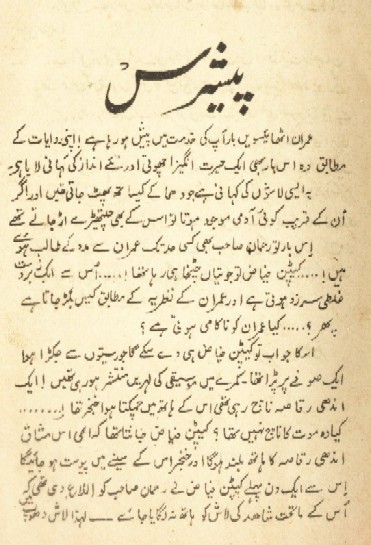 پیشرس
عمران اٹھائیسویں بار آپ کی خدمت میں پیش ہو رہا ہے! اپنی روایات کے
مطابق وہ اس بار بھی ایک حیرت انگیز اچھوتی اور نئے انداز کی کہانی لایا ہے۔
یہ ایسی لاشوں کی کہانی ہے جو دھماکے کیساتھ پھٹ جاتی تھیں اور اگر
ان کے قریب کوئی آدمی موجود ہوتا تو اس کے بھی چیتھڑے اڑ جاتے تھے
اس بار تو رحمان صاحب بھی کسی حد تک عمران سے مدد کے طالب ہوئے
ہیں!.... کیپٹن فیاض تو جوتیاں چٹخا ہی رہا تھا!..... اُس سے ایک زبردست
غلطی سرزد ہوتی ہے اور عمران کے نظریہ کے مطابق کیس بگڑ جاتا ہے
پھر؟..... کیا عمران کو ناکامی ہوتی ہے؟
اسکا جواب تو کیپٹن فیاض ہی دے سکے گا جو رسیوں سے جکڑا ہوا
ایک صوفے پر پڑا تھا۔ کمرے میں موسیقی کی لہریں منتشر ہو رہی تھیں! ایک
اندھی رقاصہ ناچ رہی تھی اس کے ہاتھ میں چمکتا ہوا خنجر تھا!........
کیا وہ موت کا ناچ نہیں تھا؟ کیپٹن فیاض جانتا تھا کہ ابھی اس مشاق
اندھی رقاصہ کا ہاتھ بلند ہوگا اور خنجر اس کے سینے میں پیوست ہو جائیگا
اس سے ایک دن پہلے کیپٹن فیاض نے رحمان صاحب کو اطلاع دی تھی کہ
اُس کے ماتحت شاہد کی لاش کو ہاتھ نہ لگایا جائے — لہذا لاش دھوپ